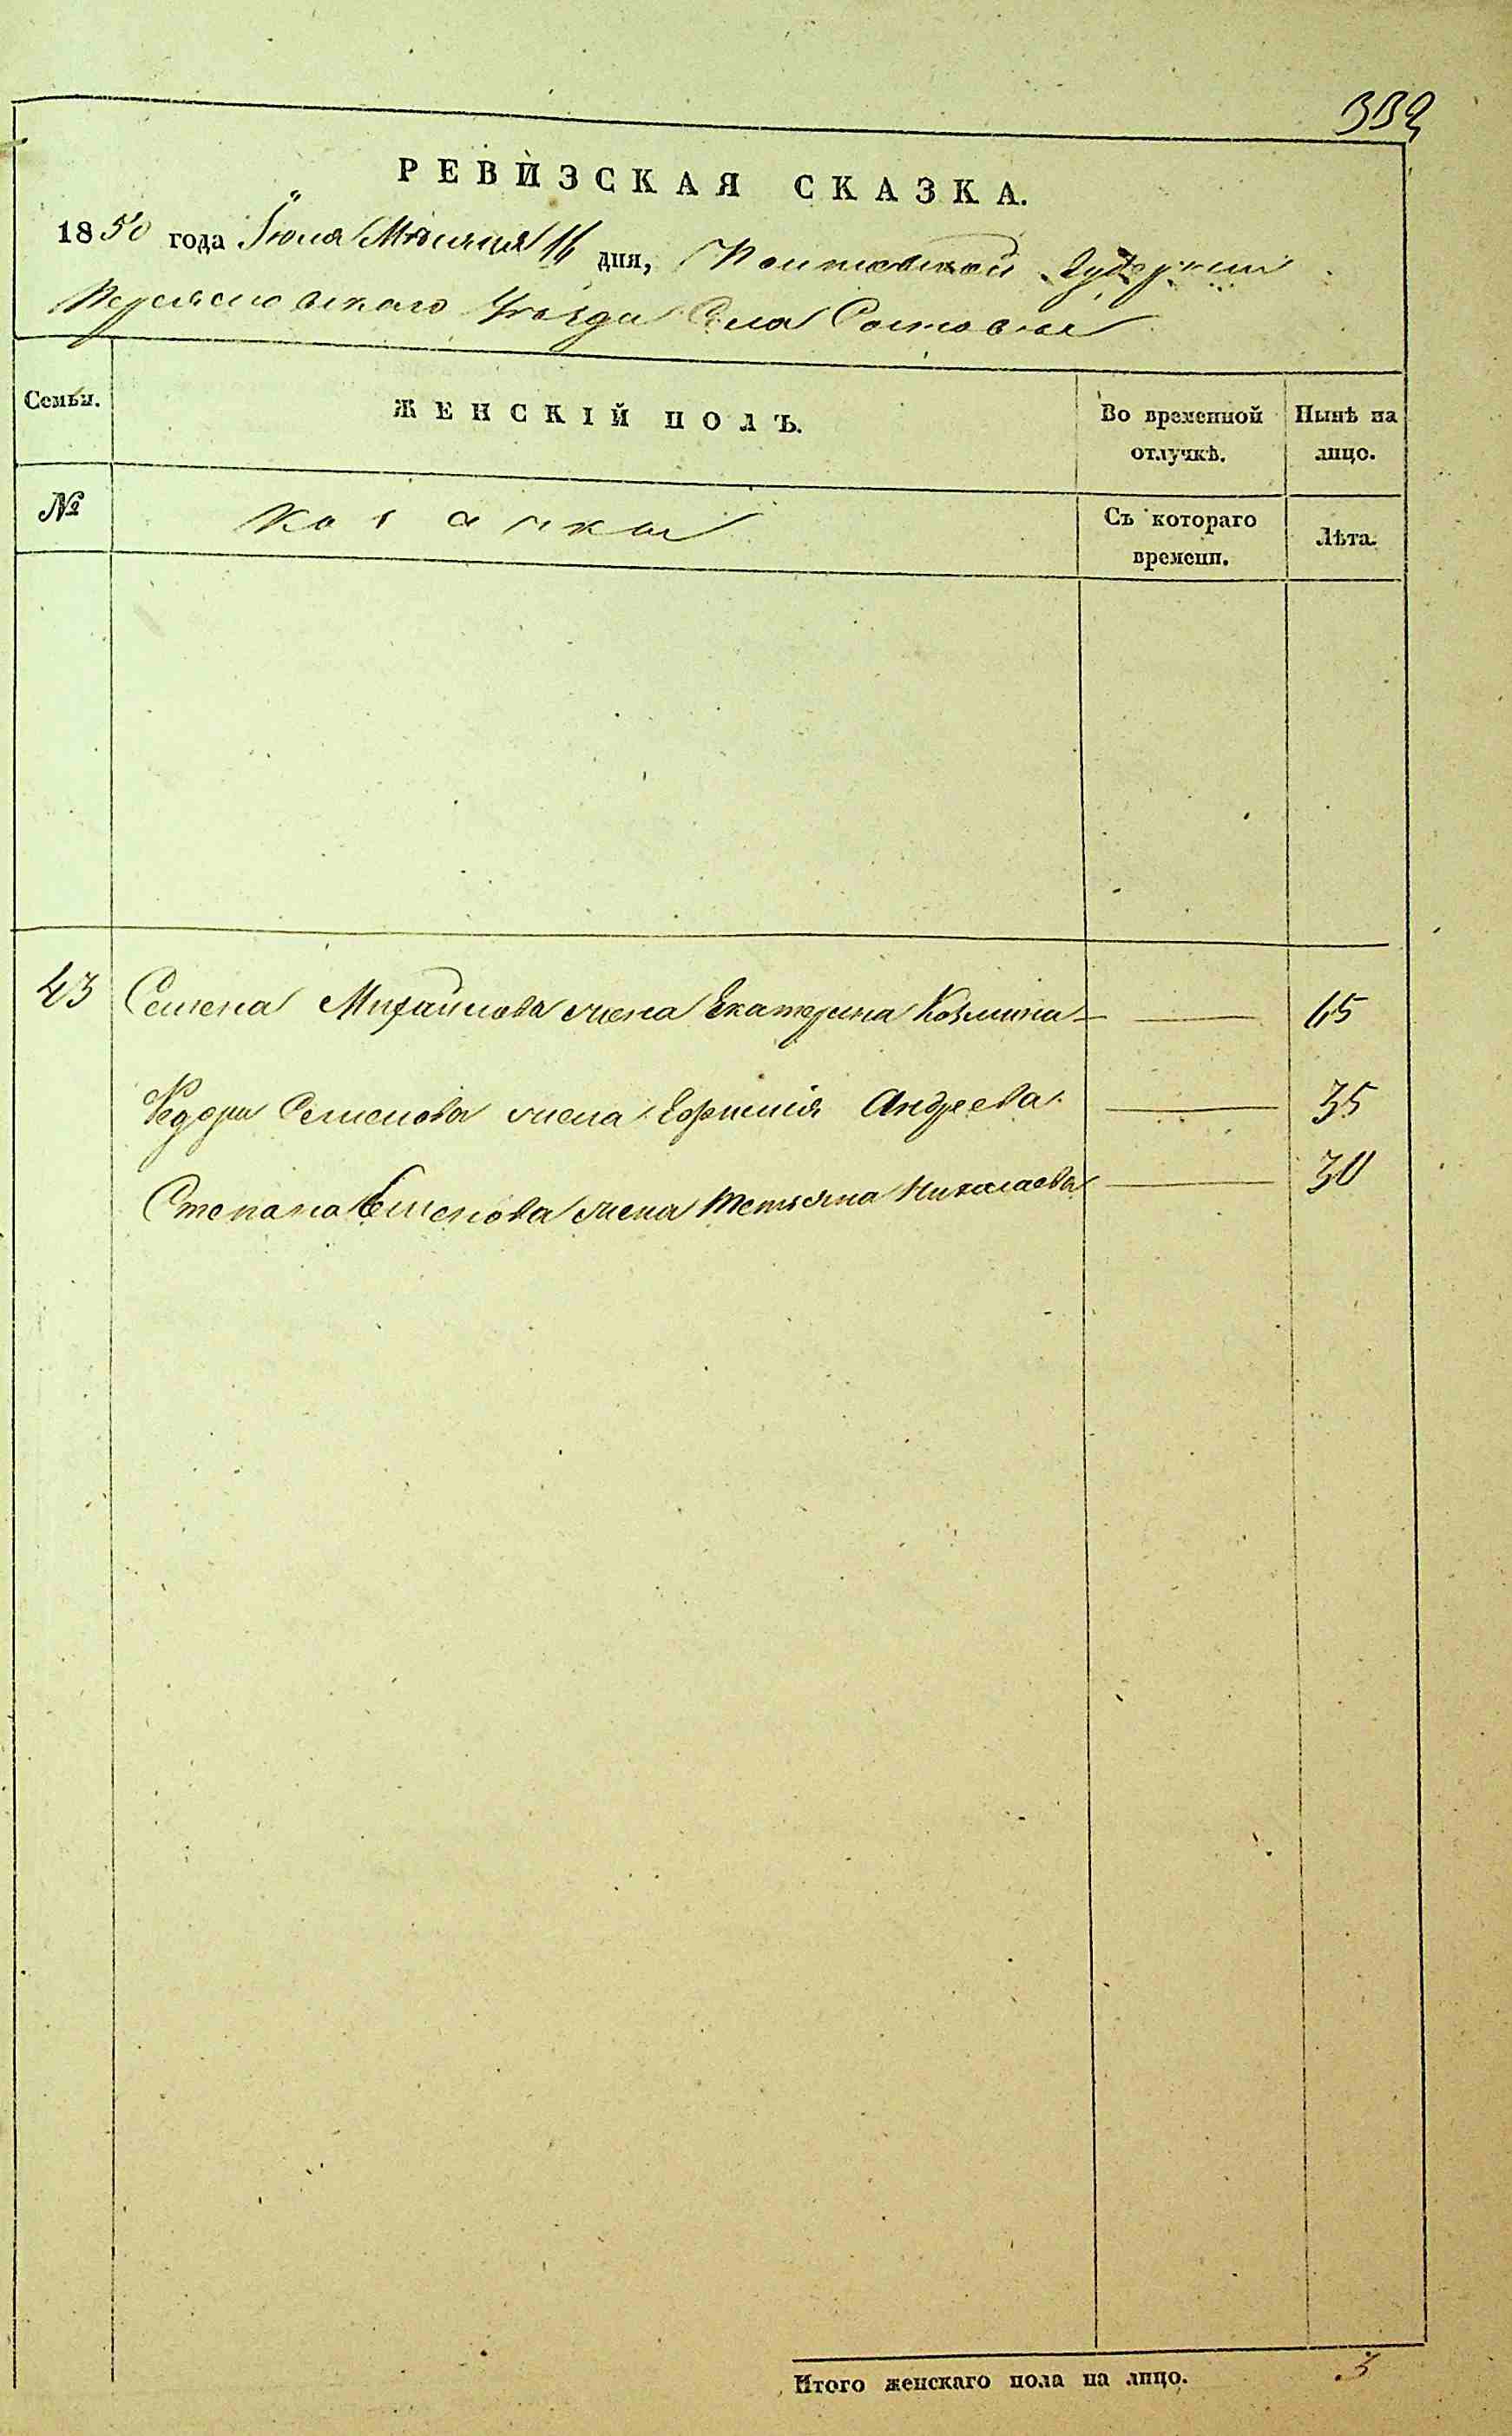 332
РЕВИЗСКАЯ СКАЗКА.
1850 года Іюля Мѣсяца 16 дня, Полтавской Губерніи
Переясловскаго Уѣзда Села
Семьи. ЖЕНСКІЙ ПОЛЪ. Во временной отлучкѣ. Нынѣ на лицо.
№ Козачки Съ котораго времени. Лѣта.
43 Семена Михайлова жена Екатерина Козмина — 65
Федора Семенова жена Ефимія Андреева — 35
Степана Семенова жена Тетьяна Николаева — 30
Итого женскаго пола на лицо. 3